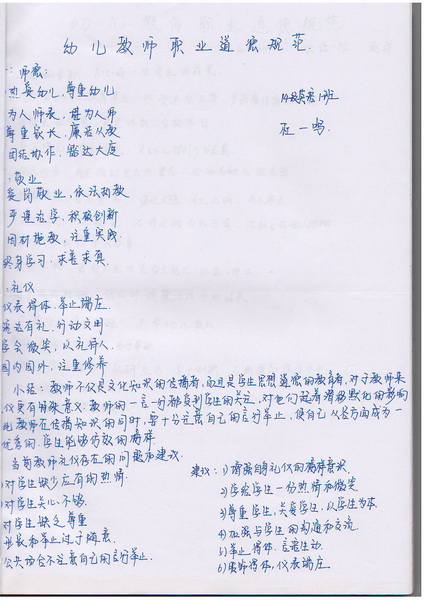 幼儿教师职业道德规范
一:师德:
热爱幼儿,尊重幼儿
为人师表,甚为人师
尊重家长,廉洁从教
团结协作,豁达大度
敬业
爱岗职业,依法执教
严谨治学,积极创新
因材施教,注重实践
终身学习,求善求真
礼仪
仪表得体,举止端庄
有礼,行动文明
学会微笑,以礼待人
园内园外,注重修养
小结:教师不仅是文化知识的传播者,而且是学生思想道德的教育者,对于教师来
仪更有特殊意义。教师的一言一行都受到学生的关注,对他们起着潜移默化的影响
此教师在传播知识的同时,要十分注意自己的言行举止,使自己从各方面成为一
优秀的、学生能够仿效的榜样。
当前教师礼仪存在的问题和建议
对学生缺少应有的热情
对学生关心不够
对学生缺乏尊重
和举止过于随意
公共场合不注意自己的言行举止
班
一鸣
建议:1)增强自身礼仪的榜样意识
2)学给学生一份热情和微笑
3)尊重学生,关爱学生,以学生为本
4)加强与学生的沟通和交流
5)举止得体,言语生动
6)教师得体,仪表端庄